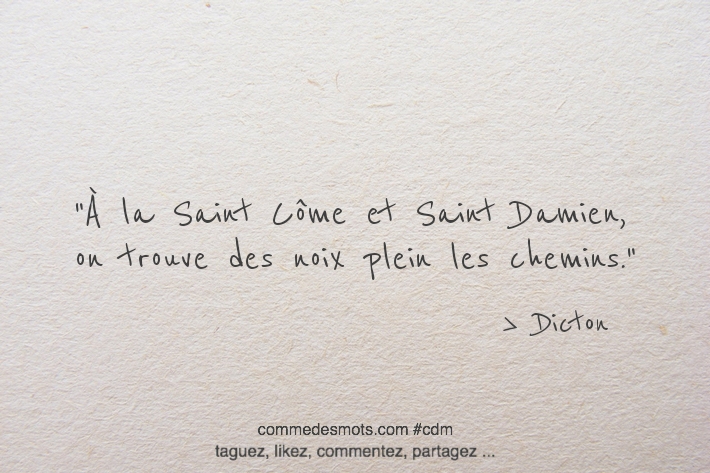 "À la Saint Côme et Saint Damien,
on trouve des noix plein les chemins."
> Dicton
commedesmots.com #cdm
taguez, likez, commentez, partagez ...